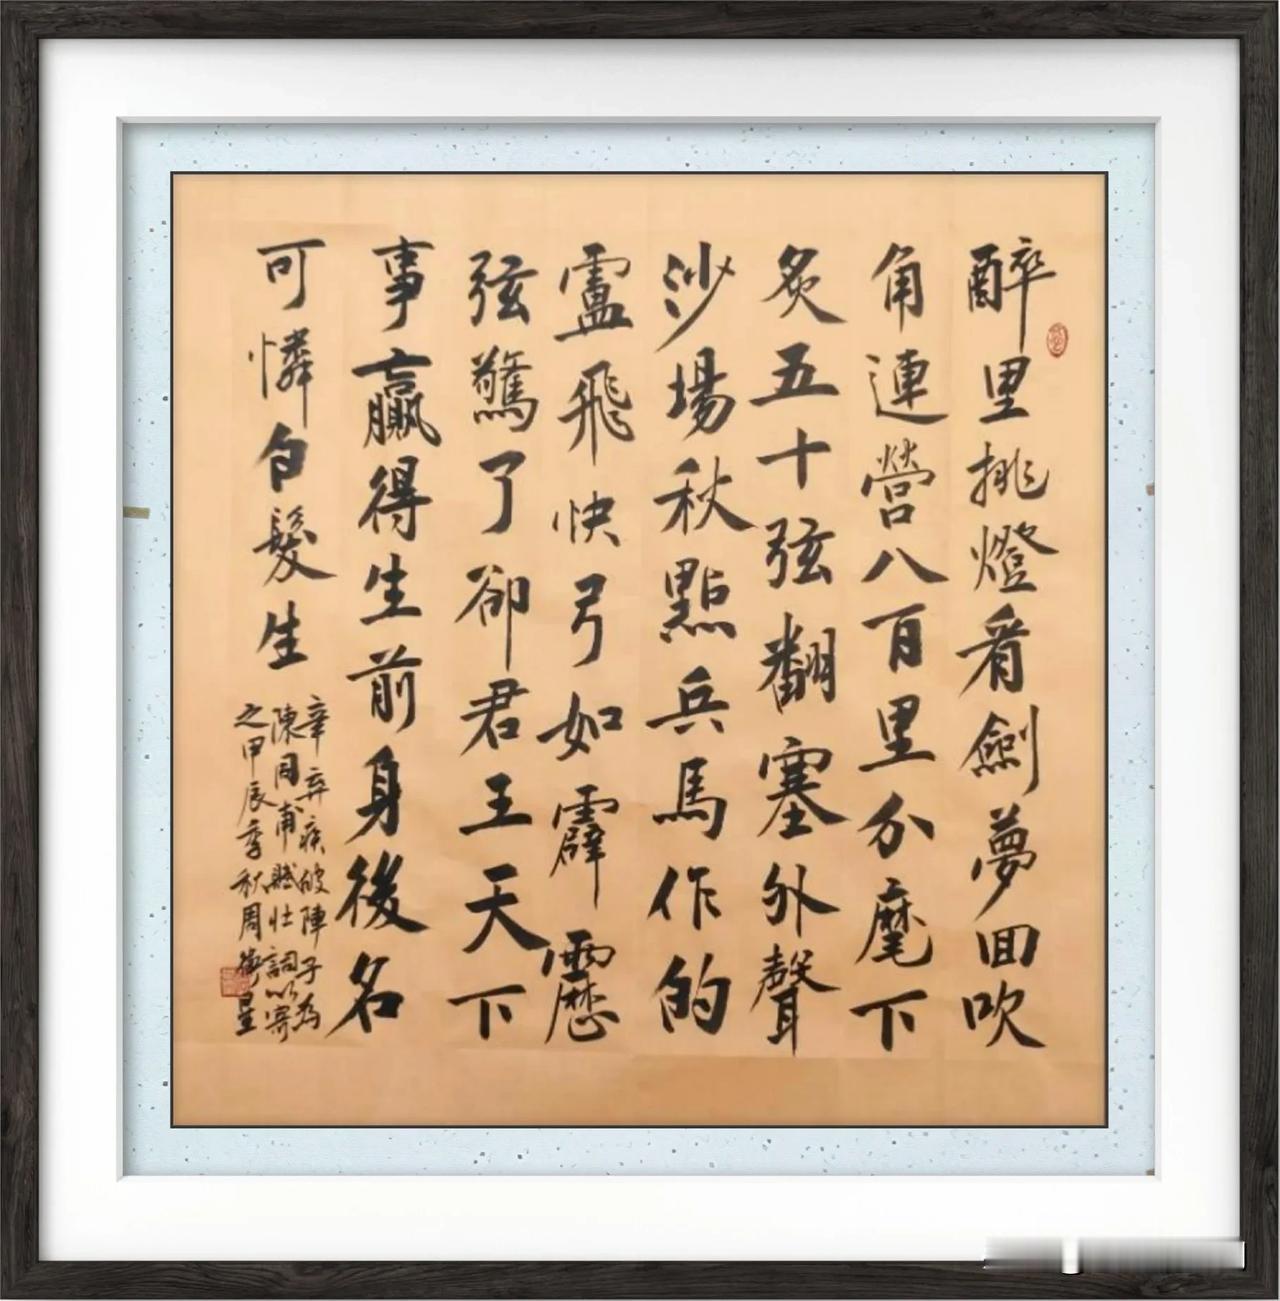 醉里挑燈看劍夢回吹
角連營八百里分麾下
炙五十弦翻塞外聲
沙場秋點兵馬作的
盧飛快弓如霹靂
弦驚了卻君王天下
事贏得生前身後名
可憐白髮生
辛弃疾破陣子為
陳同甫賦壯詞以寄
之甲辰季秋周衛星